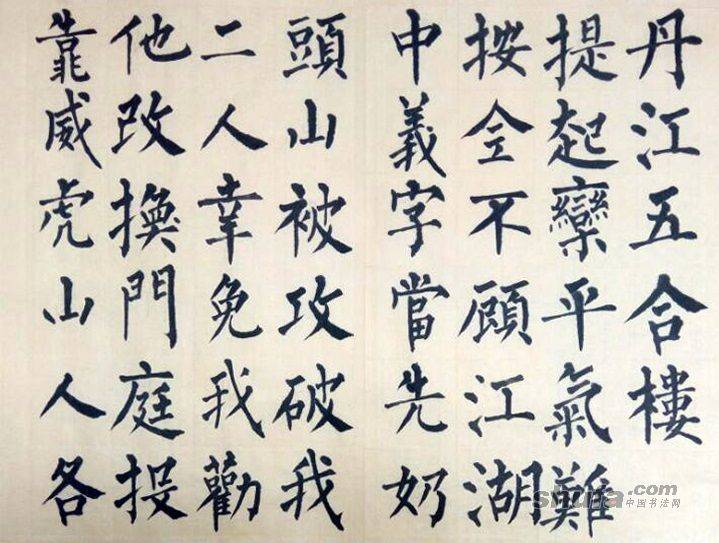 丹江五合樓
提起欒平氣難
按全不顧江湖
中義字當先奶
頭山被攻破我
二人幸免我勸
他改換門庭投
靠威虎山人各
shufa.com
中国书法网